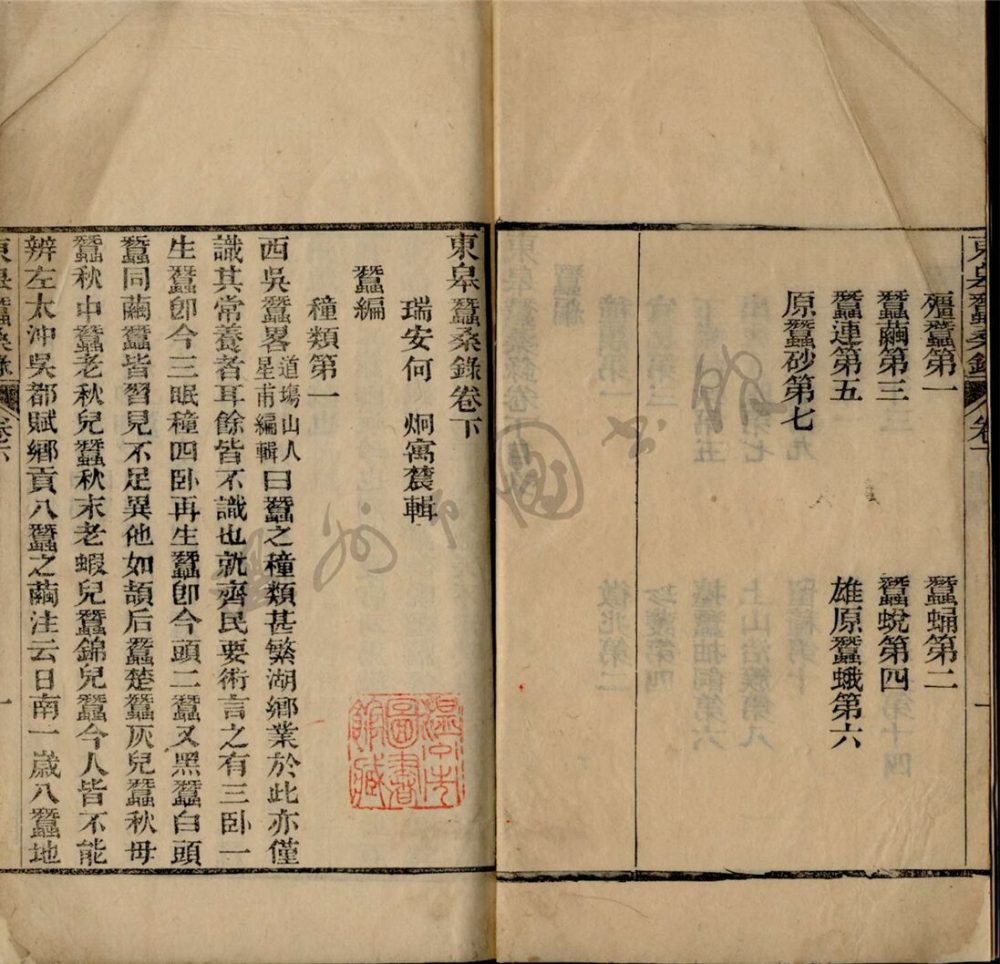 殭蠶第一 蠶蛹第二
蠶繭第三 蠶蛻第四
蠶連第五 雄原蠶蛾第六
原蠶砂第七
東皋蠶桑錄卷下
瑞安何 炯寓農輯
蠶編
種類第一
西吳蠶畧道塲山人星甫編輯曰蠶之種類甚繁湖鄉業於此亦僅
識其常養者耳餘皆不識也就齊民要術言之有三卧一
生蠶卽今三眠種四卧再生蠶卽今頭二蠶又黑蠶白頭
蠶同繭蠶皆習見不足異他如頡后蠶楚蠶灰兒蠶秋毋
蠶秋中蠶老秋兒蠶秋末老蝦兒蠶錦兒蠶今人皆不能
辨左太沖吳都賦鄉貢八蠶之繭注云日南一歲八蠶地
東皋蠶桑錄
一
溫州市圖書館藏